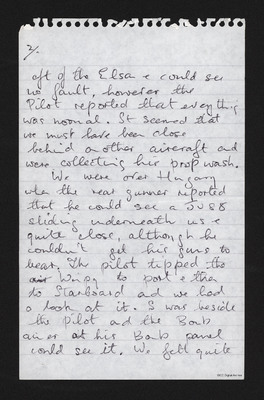 2/.
aft of the Elsan & could see
no fault, however the
Pilot reported that everything
was normal. It seemed that
we must have been close
behind another aircraft and
were collecting his prop wash.
We were over Hungary
when the rear gunner reported
that he could see a JU88
sliding underneath us &
quite close, although he
couldn't get his guns to
bear. The pilot tipped the
wings to port & then
to Starboard and we had
a look at it. I was beside
the Pilot and the Bomb
aimer at his Bomb panel
could see it. We felt quite